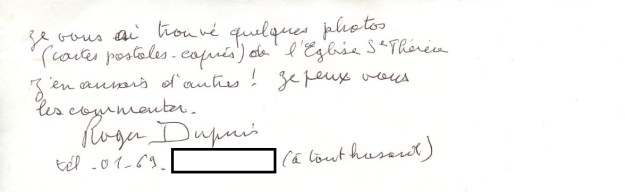 Je vous ai trouvé quelques photos
(cartes postales - copiés) de l'Eglise Ste Thérèse
J'en aurais d'autres ! Je peux vous
les commenter.
Roger Dupuis
tél - 01 - 69 - (à tout hasard)